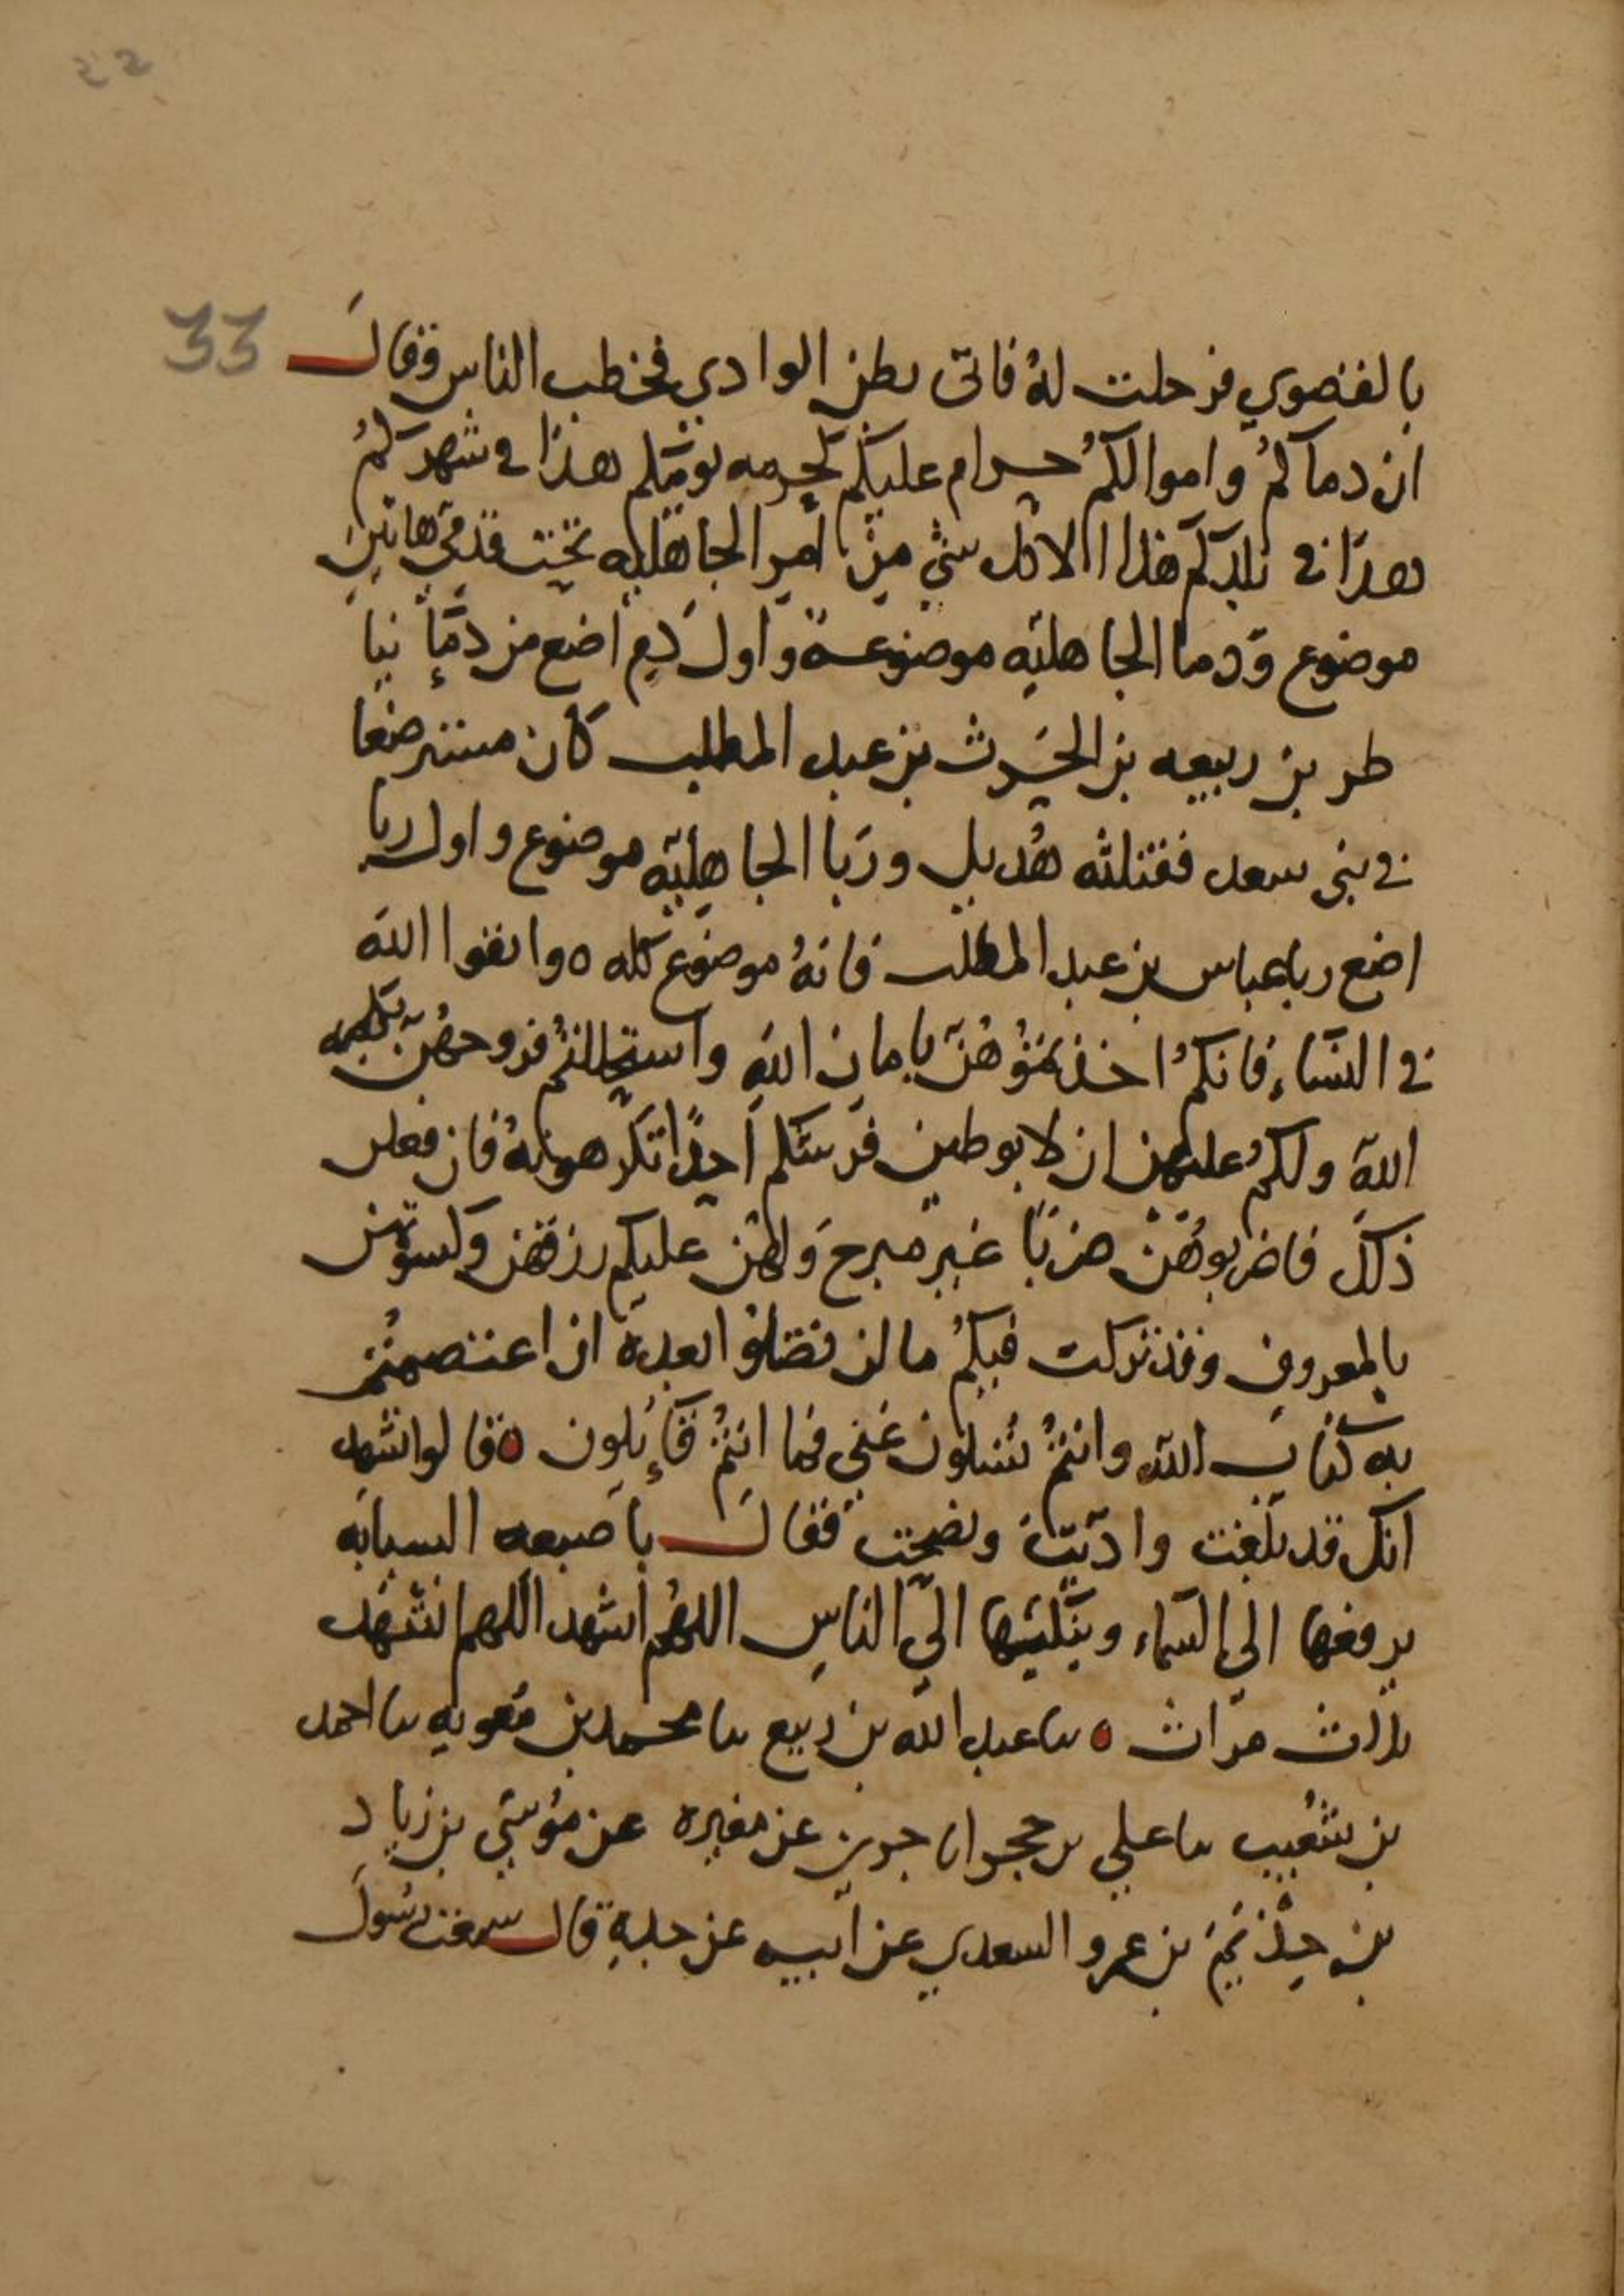 ٤٤
33
بالقصوي فرحلت له فاتى بطن الوادي فخطب الناس وقال
ان دماكم واموالكم حرام عليكم كحرمه يومكم هذا في شهركم
هذا في بلدكم هذا الا كل شي من امر الجاهليه تحت قدمي هاتين
موضوع ودما الجاهليه موضوعة واول دم اضع من دمإ نبا
طر بن ربيعه بن الحرث بن عبد المطلب كان مسترضعا
في بني سعد فقتلته هديل وربا الجاهليه موضوع واول ربا
اضع ربا عباس بن عبد المطلب فانه موضوع كله ه واتقوا الله
في النساء فانكم اخذتموهن بامان الله واستحللتم فروجهن بكلمه
الله ولكم عليهن ان لا يوطين فرشكم احدا تكرهونه فان فعلن
ذلك فاضربوهن ضربا غير مبرح ولهن عليكم رزقهن وكسوتهن
بالمعروف وقد تركت فيكم ما لن تضلوا بعده ان اعتصمتم
به كتاب الله وانتم تسلون عني فما انتم قايلون ه قالوا نشهد
انك قد بلغت واديت ونصحت فقال باصبعه السبابه
يرفعها الى السماء وينكتها الى الناس اللهم اشهد اللهم اشهد
ثلاث مرات ه نا عبد الله بن ربيع نا محمد بن معويه نا احمد
بن شعيب نا علي بن حجر انا جرير عن مغيره عن موسى بن زياد
بن حذيم بن عمرو السعدي عن ابيه عن جده قال سمعت رسول